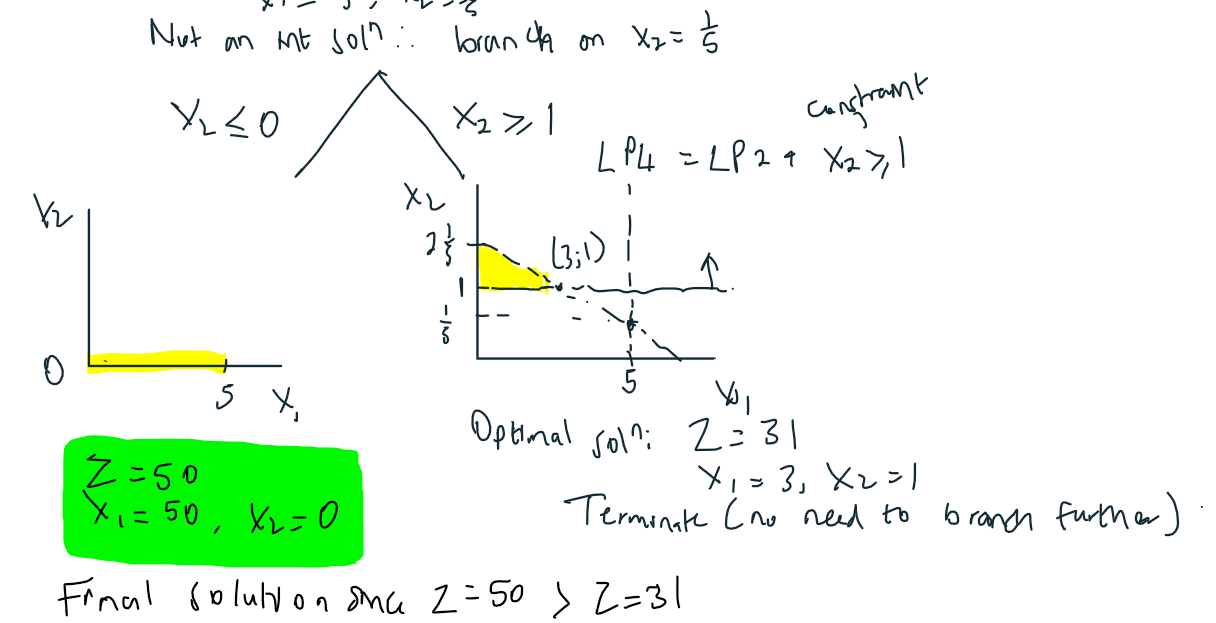 Not an int solⁿ ∴ branch on X₂ = 1/5
X₂ ≤ 0
X₂ ≥ 1
constraint
LP4 = LP2 + X₂ ≥ 1
X₂
0
5
X₁
X₂
2 1/5
(3;1)
1
1/5
5
X₁
Z = 50
X₁ = 50, X₂ = 0
Optimal solⁿ: Z = 31
X₁ = 3, X₂ = 1
Terminate (no need to branch further)
Final solution since Z = 50 > Z = 31